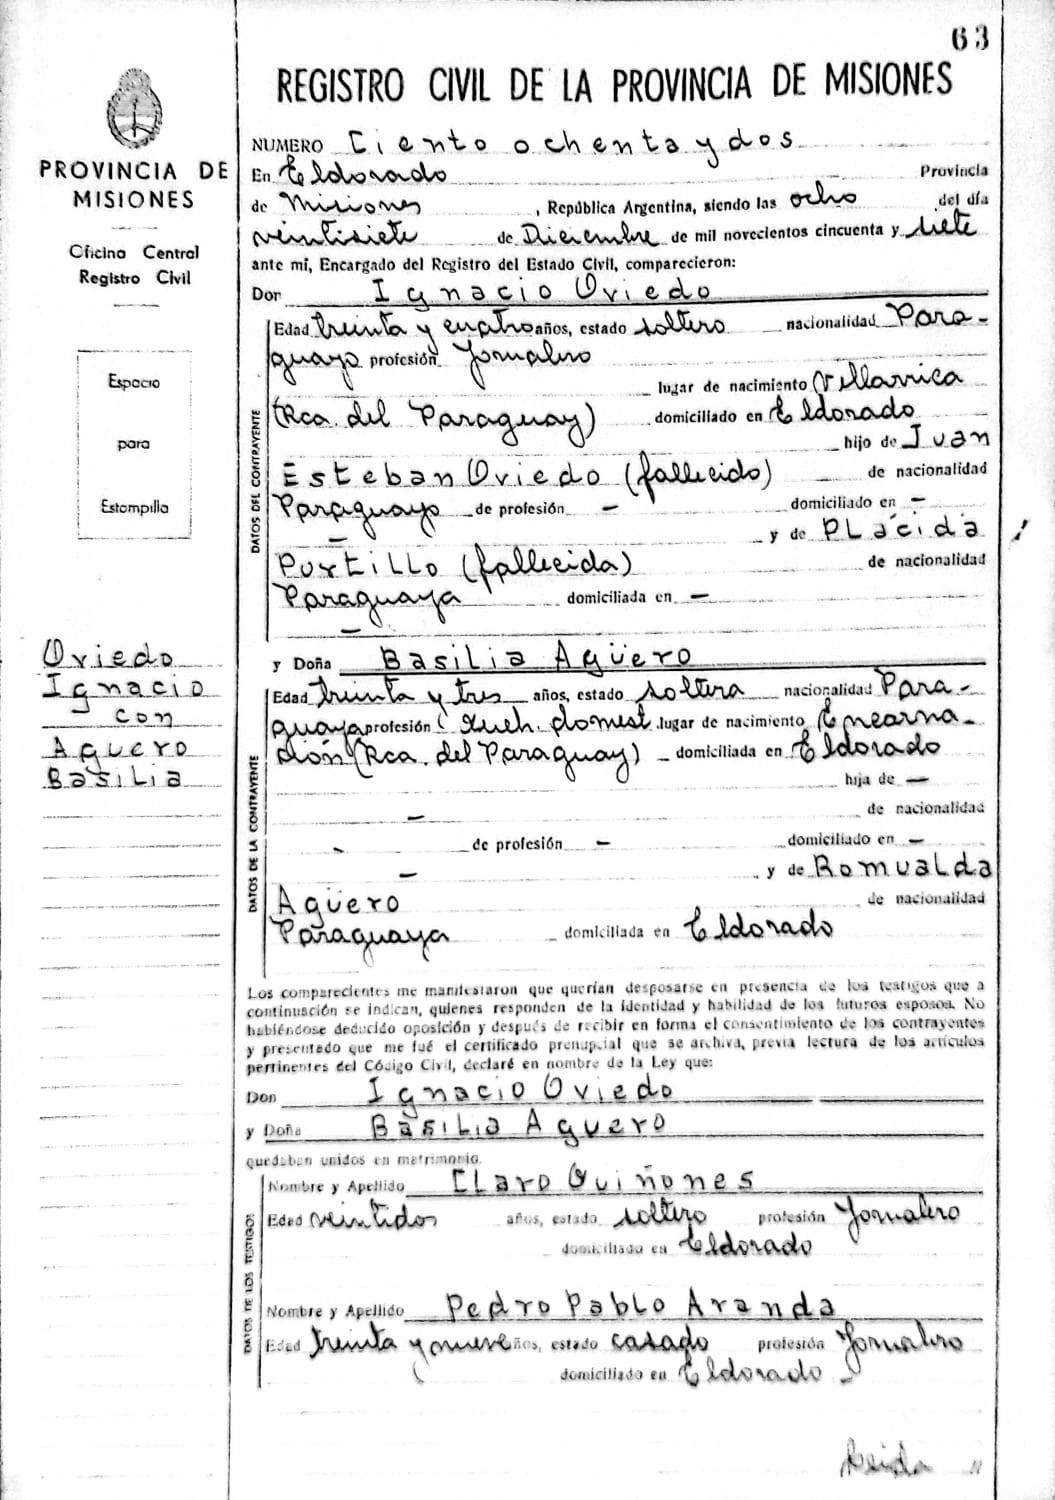 63
REGISTRO CIVIL DE LA PROVINCIA DE MISIONES
PROVINCIA DE
MISIONES
Oficina Central
Registro Civil
Espacio
para
Estampilla
Oviedo
Ignacio
con
Aguero
Basilia
NUMERO Ciento ochenta y dos
En Eldorado Provincia
de Misiones , República Argentina, siendo las ocho del día
veintisiete de Diciembre de mil novecientos cincuenta y siete
ante mi, Encargado del Registro del Estado Civil, comparecieron:
Don Ignacio Oviedo
DATOS DEL CONTRAYENTE
Edad treinta y cuatro años, estado soltero nacionalidad Para-
guayo profesión Jornalero
lugar de nacimiento Villarrica
(Rca. del Paraguay) domiciliado en Eldorado
hijo de Juan
Esteban Oviedo (fallecido) de nacionalidad
Paraguayo de profesión — domiciliado en —
— y de Plácida
Portillo (fallecida) de nacionalidad
Paraguaya domiciliada en —
—
y Doña Basilia Agüero
DATOS DE LA CONTRAYENTE
Edad treinta y tres años, estado soltera nacionalidad Para-
guaya profesión Queh. domest. lugar de nacimiento Encarna-
ción (Rca. del Paraguay) domiciliada en Eldorado
hija de —
— de nacionalidad
- de profesión — domiciliado en —
— y de Romualda
Agüero de nacionalidad
Paraguaya domiciliada en Eldorado
Los comparecientes me manifestaron que querían desposarse en presencia de los testigos que a
continuación se indican, quienes responden de la identidad y habilidad de los futuros esposos. No
habiéndose deducido oposición y después de recibir en forma el consentimiento de los contrayentes
y presentado que me fué el certificado prenupcial que se archiva, previa lectura de los artículos
pertinentes del Código Civil, declaré en nombre de la Ley que:
Don Ignacio Oviedo
y Doña Basilia Aguero
quedaban unidos en matrimonio.
DATOS DE LOS TESTIGOS
Nombre y Apellido Claro Quiñones
Edad veintidos años, estado soltero profesión Jornalero
domiciliado en Eldorado
Nombre y Apellido Pedro Pablo Aranda
Edad treinta y nueve años, estado casado profesión Jornalero
domiciliado en Eldorado —
Leida